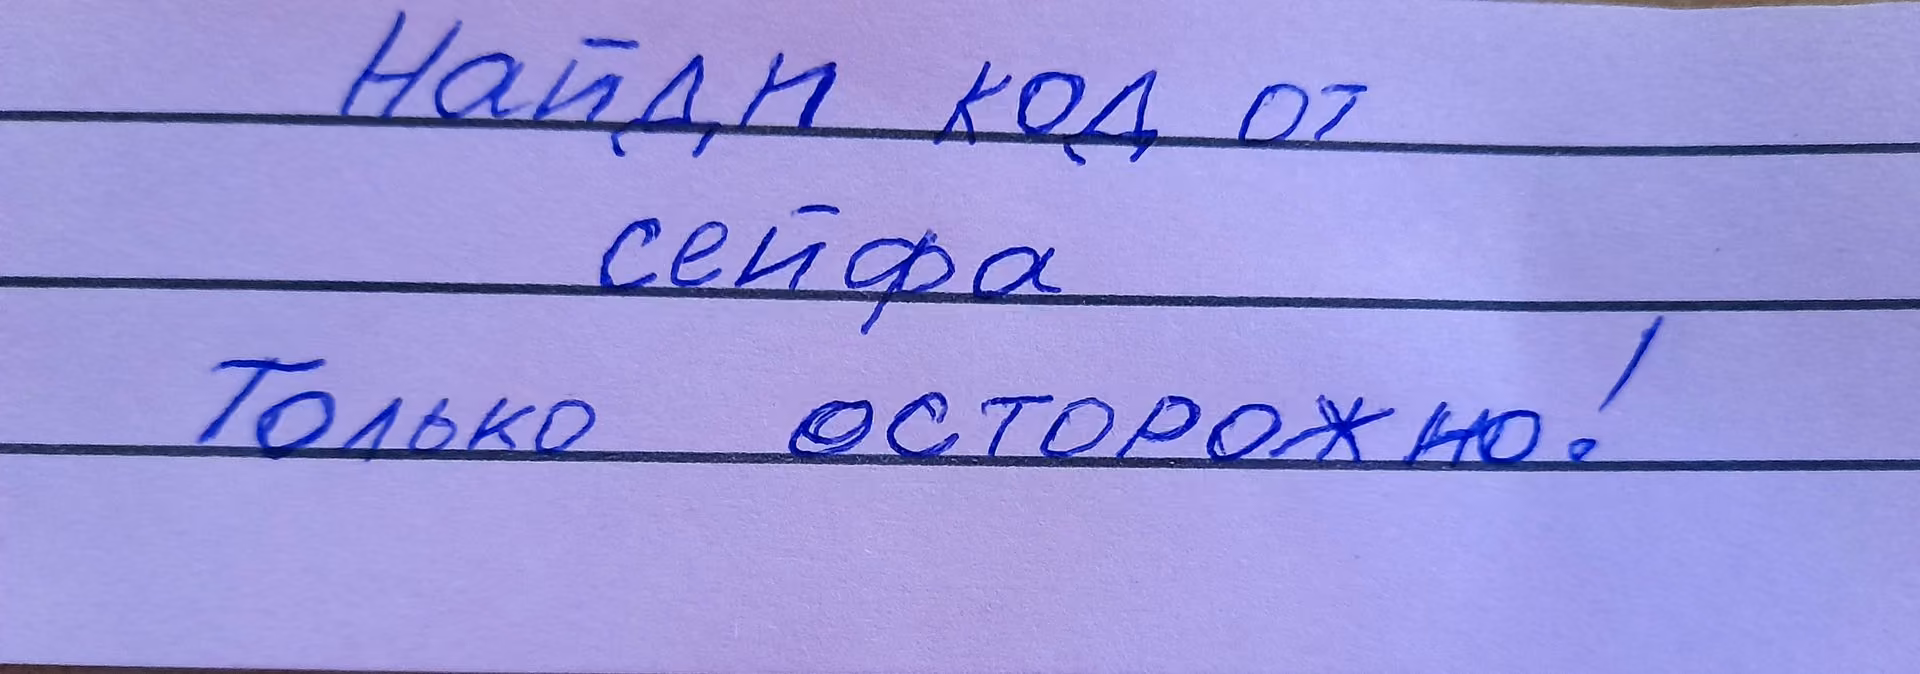 Найди код от
сейфа
Только осторожно!